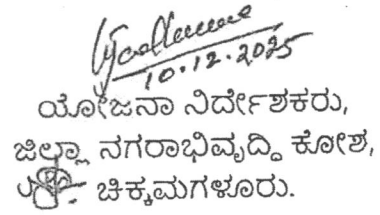 10.12.2025
ಯೋಜನಾ ನಿರ್ದೇಶಕರು,
ಜಿಲ್ಲಾ ನಗರಾಭಿವೃದ್ಧಿ ಕೋಶ,
ಚಿಕ್ಕಮಗಳೂರು.